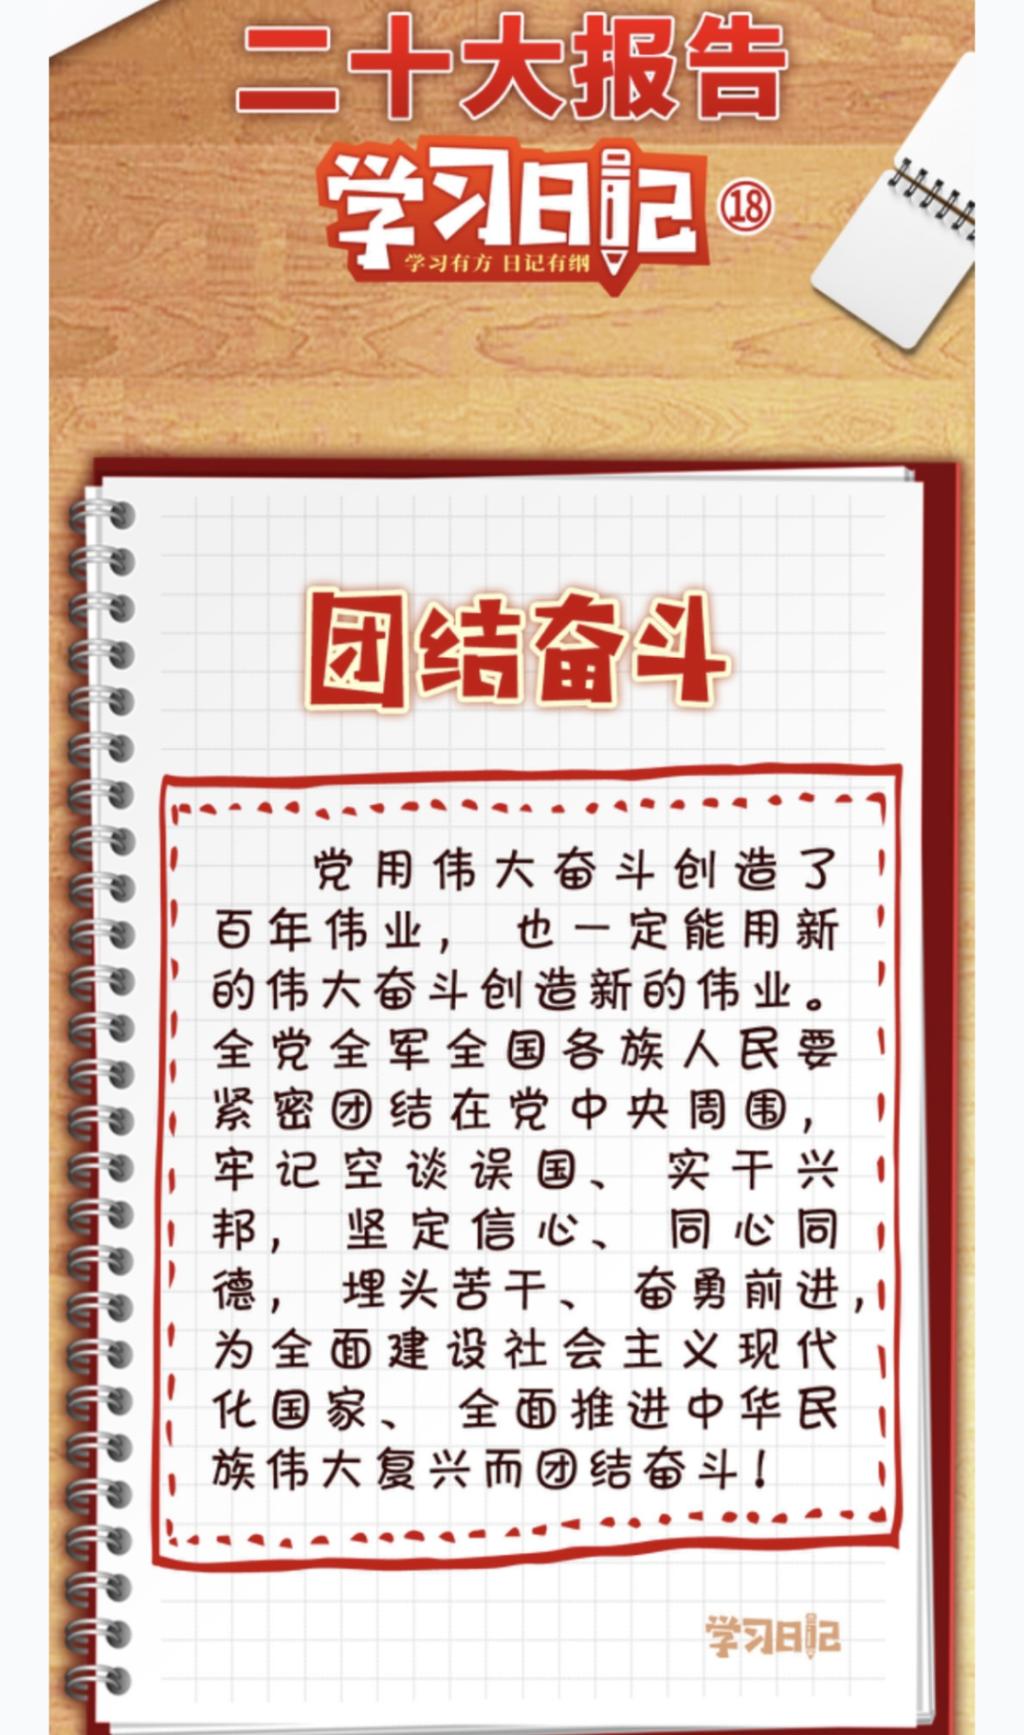 二十大报告
学习日记
⑱
学习有方 日记有纲
团结奋斗
党用伟大奋斗创造了
百年伟业， 也一定能用新
的伟大奋斗创造新的伟业。
全党全军全国各族人民要
紧密团结在党中央周围，
牢记空谈误国、 实干兴
邦， 坚定信心、 同心同
德， 埋头苦干、 奋勇前进，
为全面建设社会主义现代
化国家、 全面推进中华民
族伟大复兴而团结奋斗！
学习日记